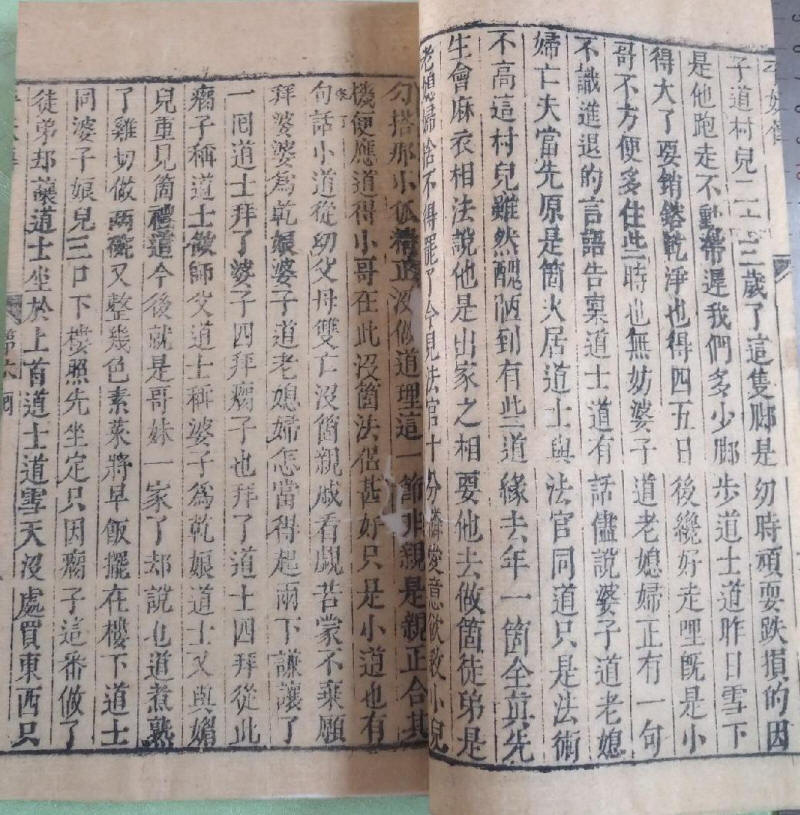 平妖傳
子道村兒二十三歲了這隻脚是幼時頑耍跌損的因
是他跑走不動帶遲我們多少脚步道士道昨日雪下
得大了要銷鎔乾淨也得四五日後纔好走哩既是小
哥不方便多住些時也無妨婆子道老媳婦正有一句
不識進退的言語告稟道士道有話儘說婆子道老媳
婦亡夫當先原是箇火居道士與法官同道只是法術
不高這村兒雖然醜陋到有些道緣去年一箇全真先
生會麻衣相法說他是出家之相要他去做箇徒弟是
老媳婦捨不得罷了今見法官十分憐愛意欲教小兒
勾搭那小狐精正沒做道理這一節非親是親正合其
機便應道得小哥在此沒箇法侶甚好只是小道也有
句話小道從幼父母雙亡沒箇親戚看覷若蒙不棄願
拜婆婆爲乾娘婆子道老媳婦怎當得起兩下謙讓了
一囘道士拜了婆子四拜瘸子也拜了道士四拜從此
瘸子稱道士做師父道士稱婆子爲乾娘道士又與媚
兒重見箇禮道今後就是哥妹一家了却說也道煮熟
了雞切做兩碗又整幾色素菜將早飯擺在樓下道士
同婆子娘兒三口下樓照先坐定只因瘸子這番做了
徒弟却讓道士坐於上首道士道雪天沒處買東西只
第六囘